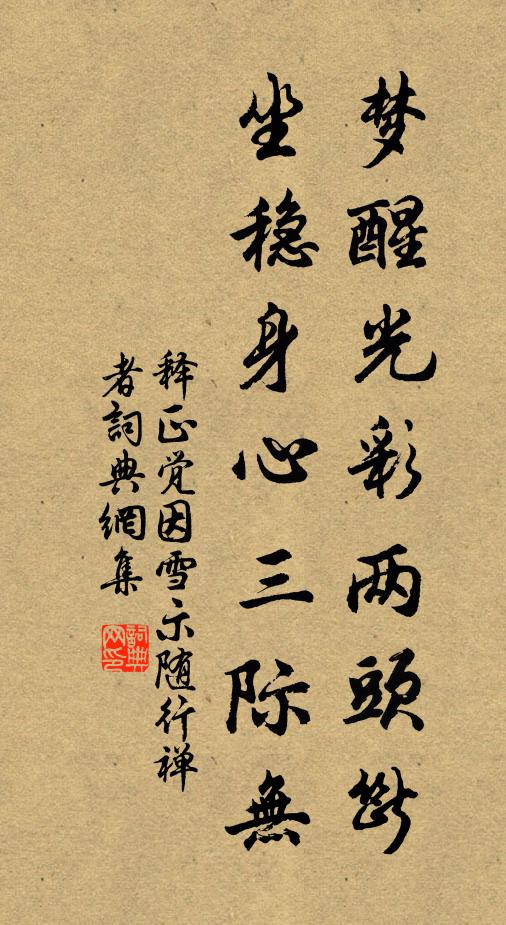 梦醒光彩两頭斷
坐稳身心三际無
释正觉因雪示随行禅
者詞典網集
詞典网印